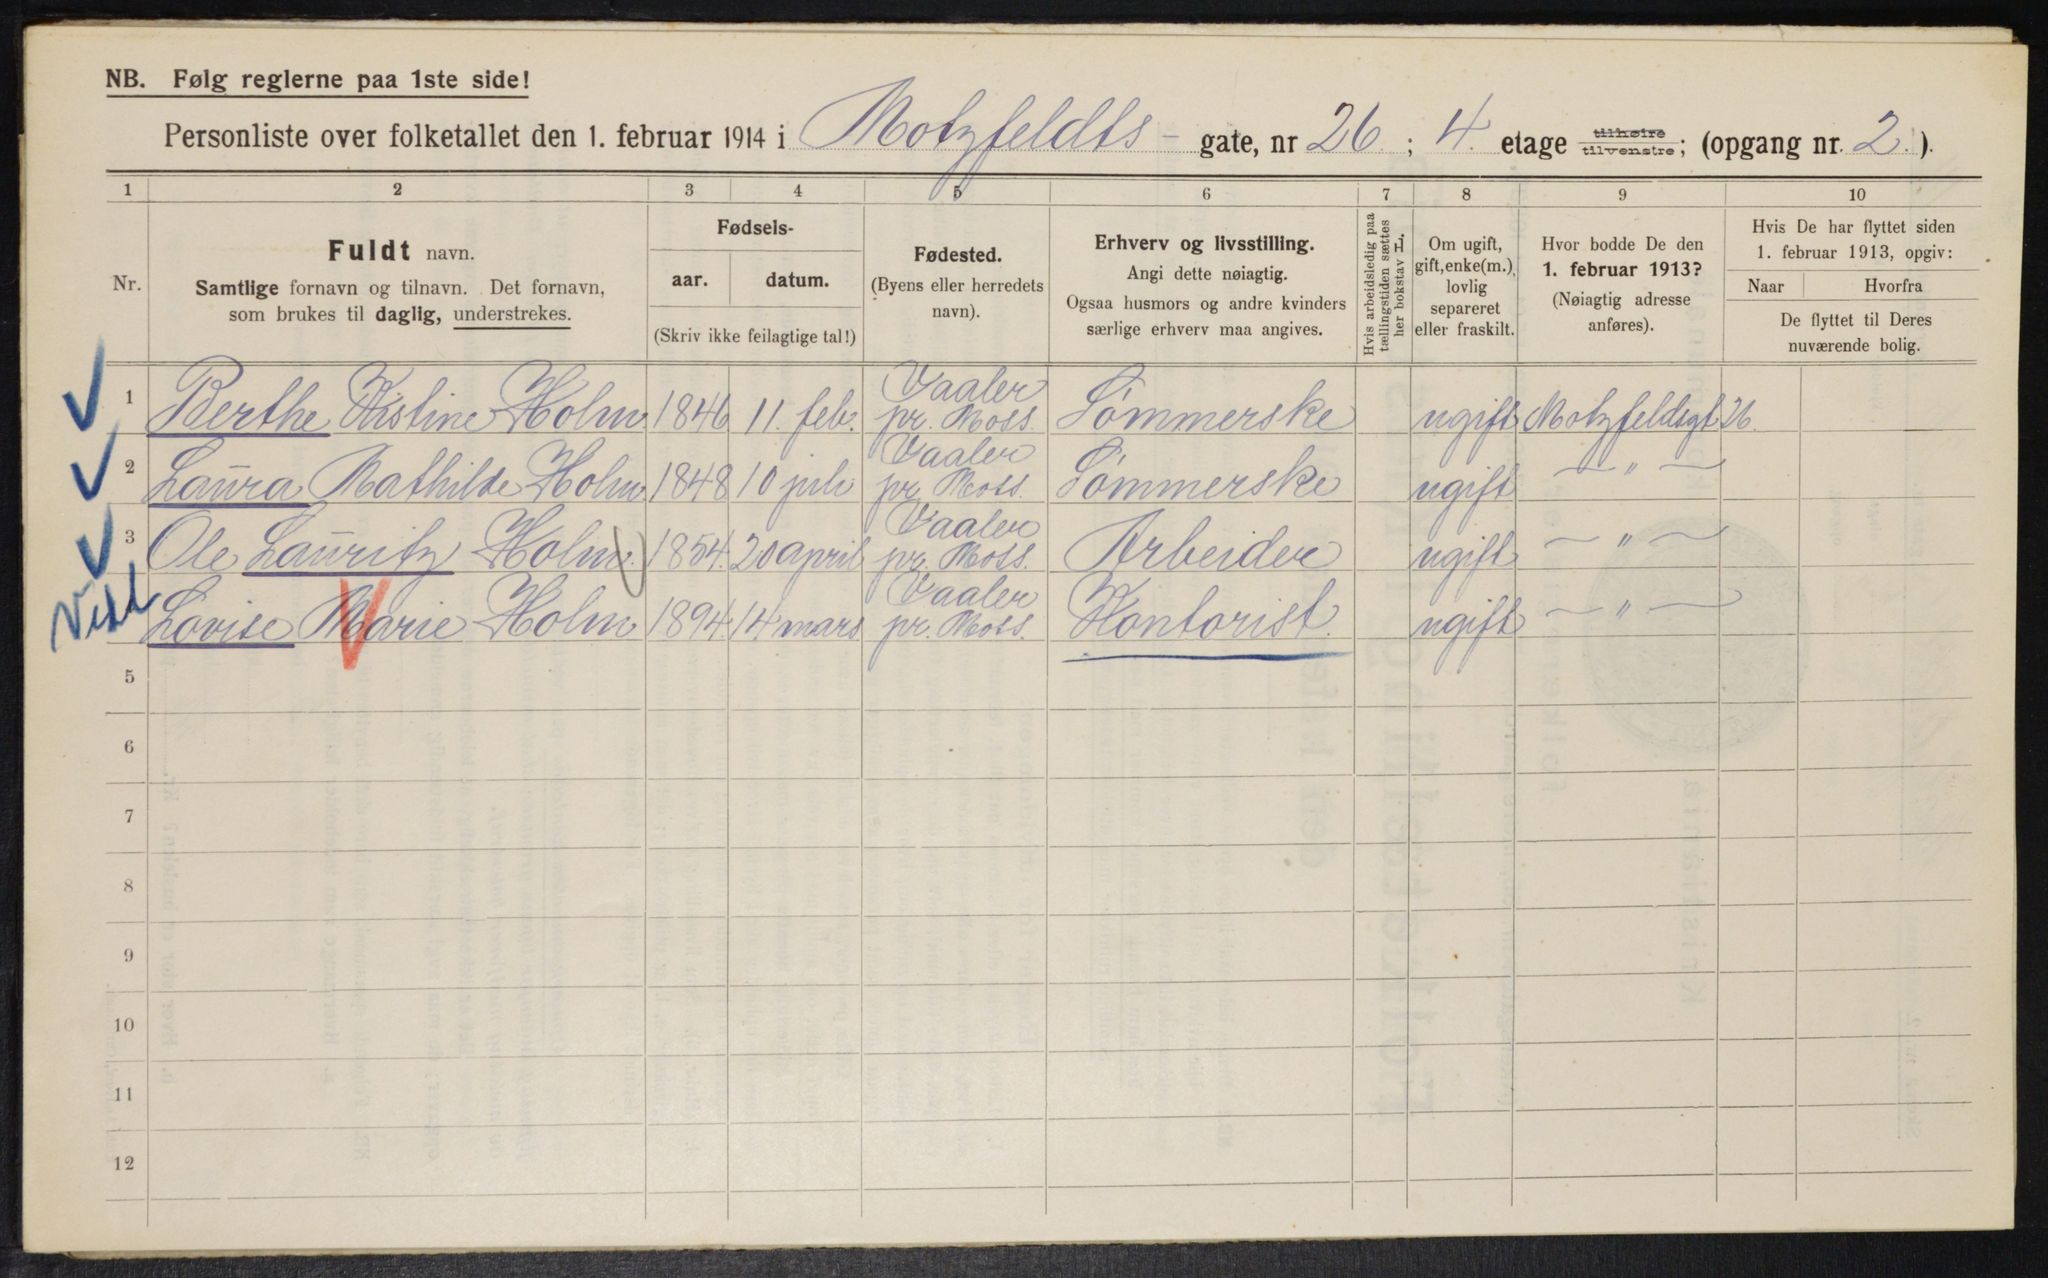 NB. Følg reglerne paa 1ste side!
Personliste over folketallet den 1. februar 1914 i Motzfeldts - gate, nr 26 ; 4. etage tilhøire tilvenstre; (opgang nr. 2.).
1 2 3 4 5 6 7 8 9 10
Nr.
Fuldt navn.
Samtlige fornavn og tilnavn. Det fornavn,
som brukes til daglig, understrekes.
Fødsels-
aar. datum.
(Skriv ikke feilagtige tal!)
Fødested.
(Byens eller herredets
navn).
Erhverv og livsstilling.
Angi dette nøiagtig.
Ogsaa husmors og andre kvinders
særlige erhverv maa angives.
Hvis arbeidsledig paa
tællingstiden sættes
her bokstav L.
Om ugift,
gift, enke(m.),
lovlig
separeret
eller fraskilt.
Hvor bodde De den
1. februar 1913?
(Nøiagtig adresse
anføres).
Hvis De har flyttet siden
1. februar 1913, opgiv:
Naar Hvorfra
De flyttet til Deres
nuværende bolig.
1 Berthe Kristine Holm 1846 11. feb. Vaaler pr. Moss. Sömmerske ugift Motzfeldtsgt 26.
2 Laura Mathilde Holm 1848 10 juli Vaaler pr. Moss. Sömmerske ugift — " —
3 Ole Lauritz Holm. 1854. 20 april Vaaler pr. Moss. Arbeider ugift — " —
Lovise Marie Holm 1894. 14 mars Vaaler pr. Moss. Kontorist. ugift — " —
5
6
7
8
9
10
11
12